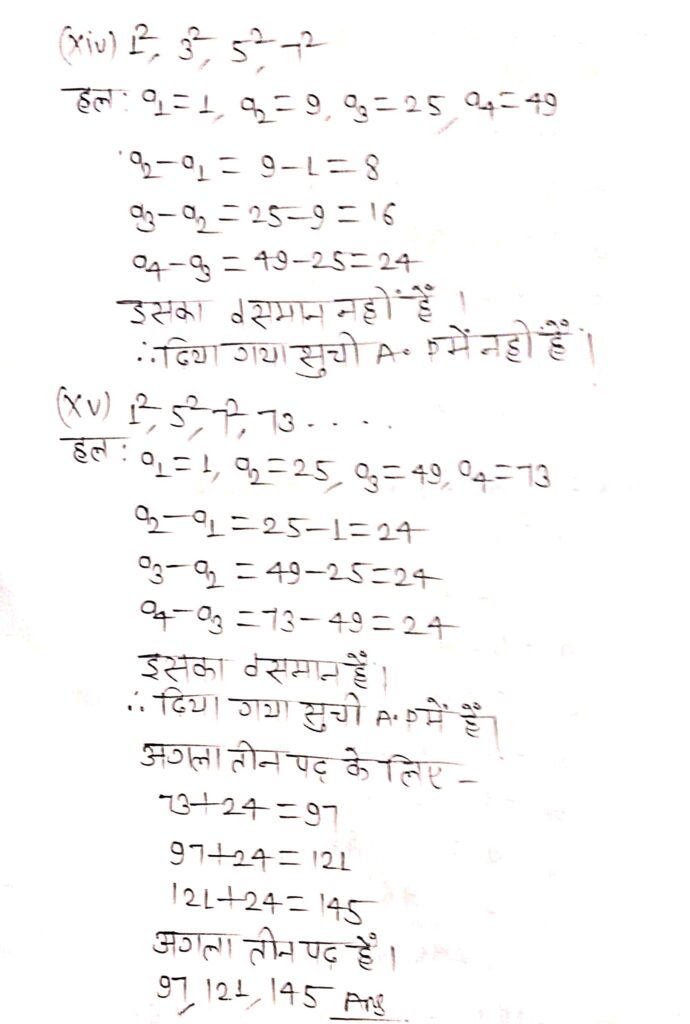 (xiv) 1², 3², 5², 7²
हल: a₁=1, a₂=9, a₃=25, a₄=49
a₂-a₁ = 9-1=8
a₃-a₂ = 25-9=16
a₄-a₃ = 49-25=24
इसका d समान नहीं हैं।
∴ दिया गया सुची A.P में नही हैं।
(xv) 1², 5², 7², 73.....
हल: a₁=1, a₂=25, a₃=49, a₄=73
a₂-a₁ =25-1=24
a₃-a₂ = 49-25=24
a₄-a₃ =73-49=24
इसका d समान हैं।
∴ दिया गया सुची A.P में हैं।
अगला तीन पद के लिए -
73+24=97
97+24=121
121+24=145
अगला तीन पद हैं।
97, 121, 145 Ans